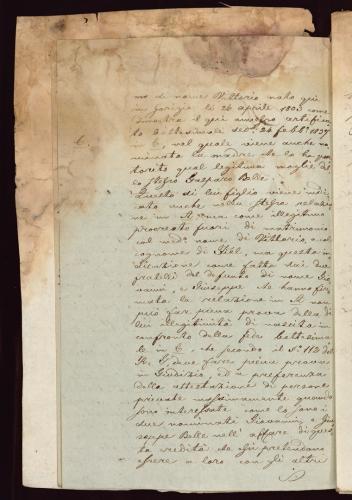 mo di nome Vittorio nato qui
in Gorizia li 26 aprile 1803 come
dimostra il qui annesso certifica
to Battesimale 24 febb° 1837
in C, nel quale viene anche no
minata la madre che lo ha par
torito qual legitima moglie del
co. Pietro Gasparo Belle.
Questo di lui figlio viene indi
cato anche nella stessa relazio
ne in A come illegittimo
procreato fuori di matrimonio
col med° nome di Vittorio, e col
cognome di ma questa in
dicazione viene fatta dai due
fratelli del defunto di nome Gio
vanni, e Giuseppe che hanno fir
mata la relazione in A non
può far piena prova della di
lui illegitimità di nascita in
confronto della fede battesima
le in C, che secondo il § 112 del
R. G. deve fare piena prova
in Giudizio, ed a preferenza
della attestazione di persone
private massimamente quando
sono interessate come lo sono i
due nominati Giovanni, e Giu
seppe Belle nell' affare di que
sta eredità che si pretendono
essere a loro con gli altri